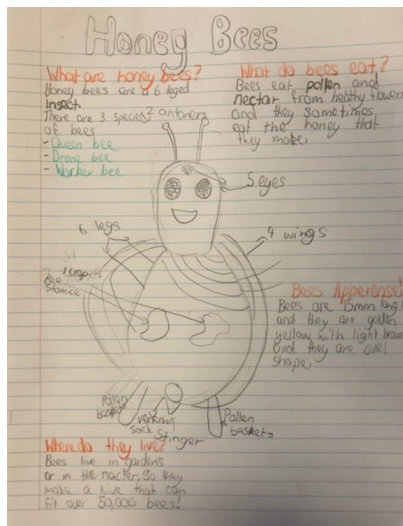 Honey Bees
What are honey bees?
Honey bees are a 6 leged
Insect
There are 3 species
of bees
- Queen bee
- Drone bee
- Worker bee
What do bees eat?
Bees eat pollen and
nectar from healthy flowers
and they sometimes
eat the honey that
they make.
2 antaners
5 eyes
6 legs
4 wings
Bee
Pollen
basket
sack
Stinger
Pollen
baskets
Bees Apperanse!
Bees are 15mm long
and they are goldin
yellow with light brown
and they are ovel
shape.
Where do they live?
Bees live in gardens
or in the nacter, So they
make a hive that can
fit over 50,000 bees!